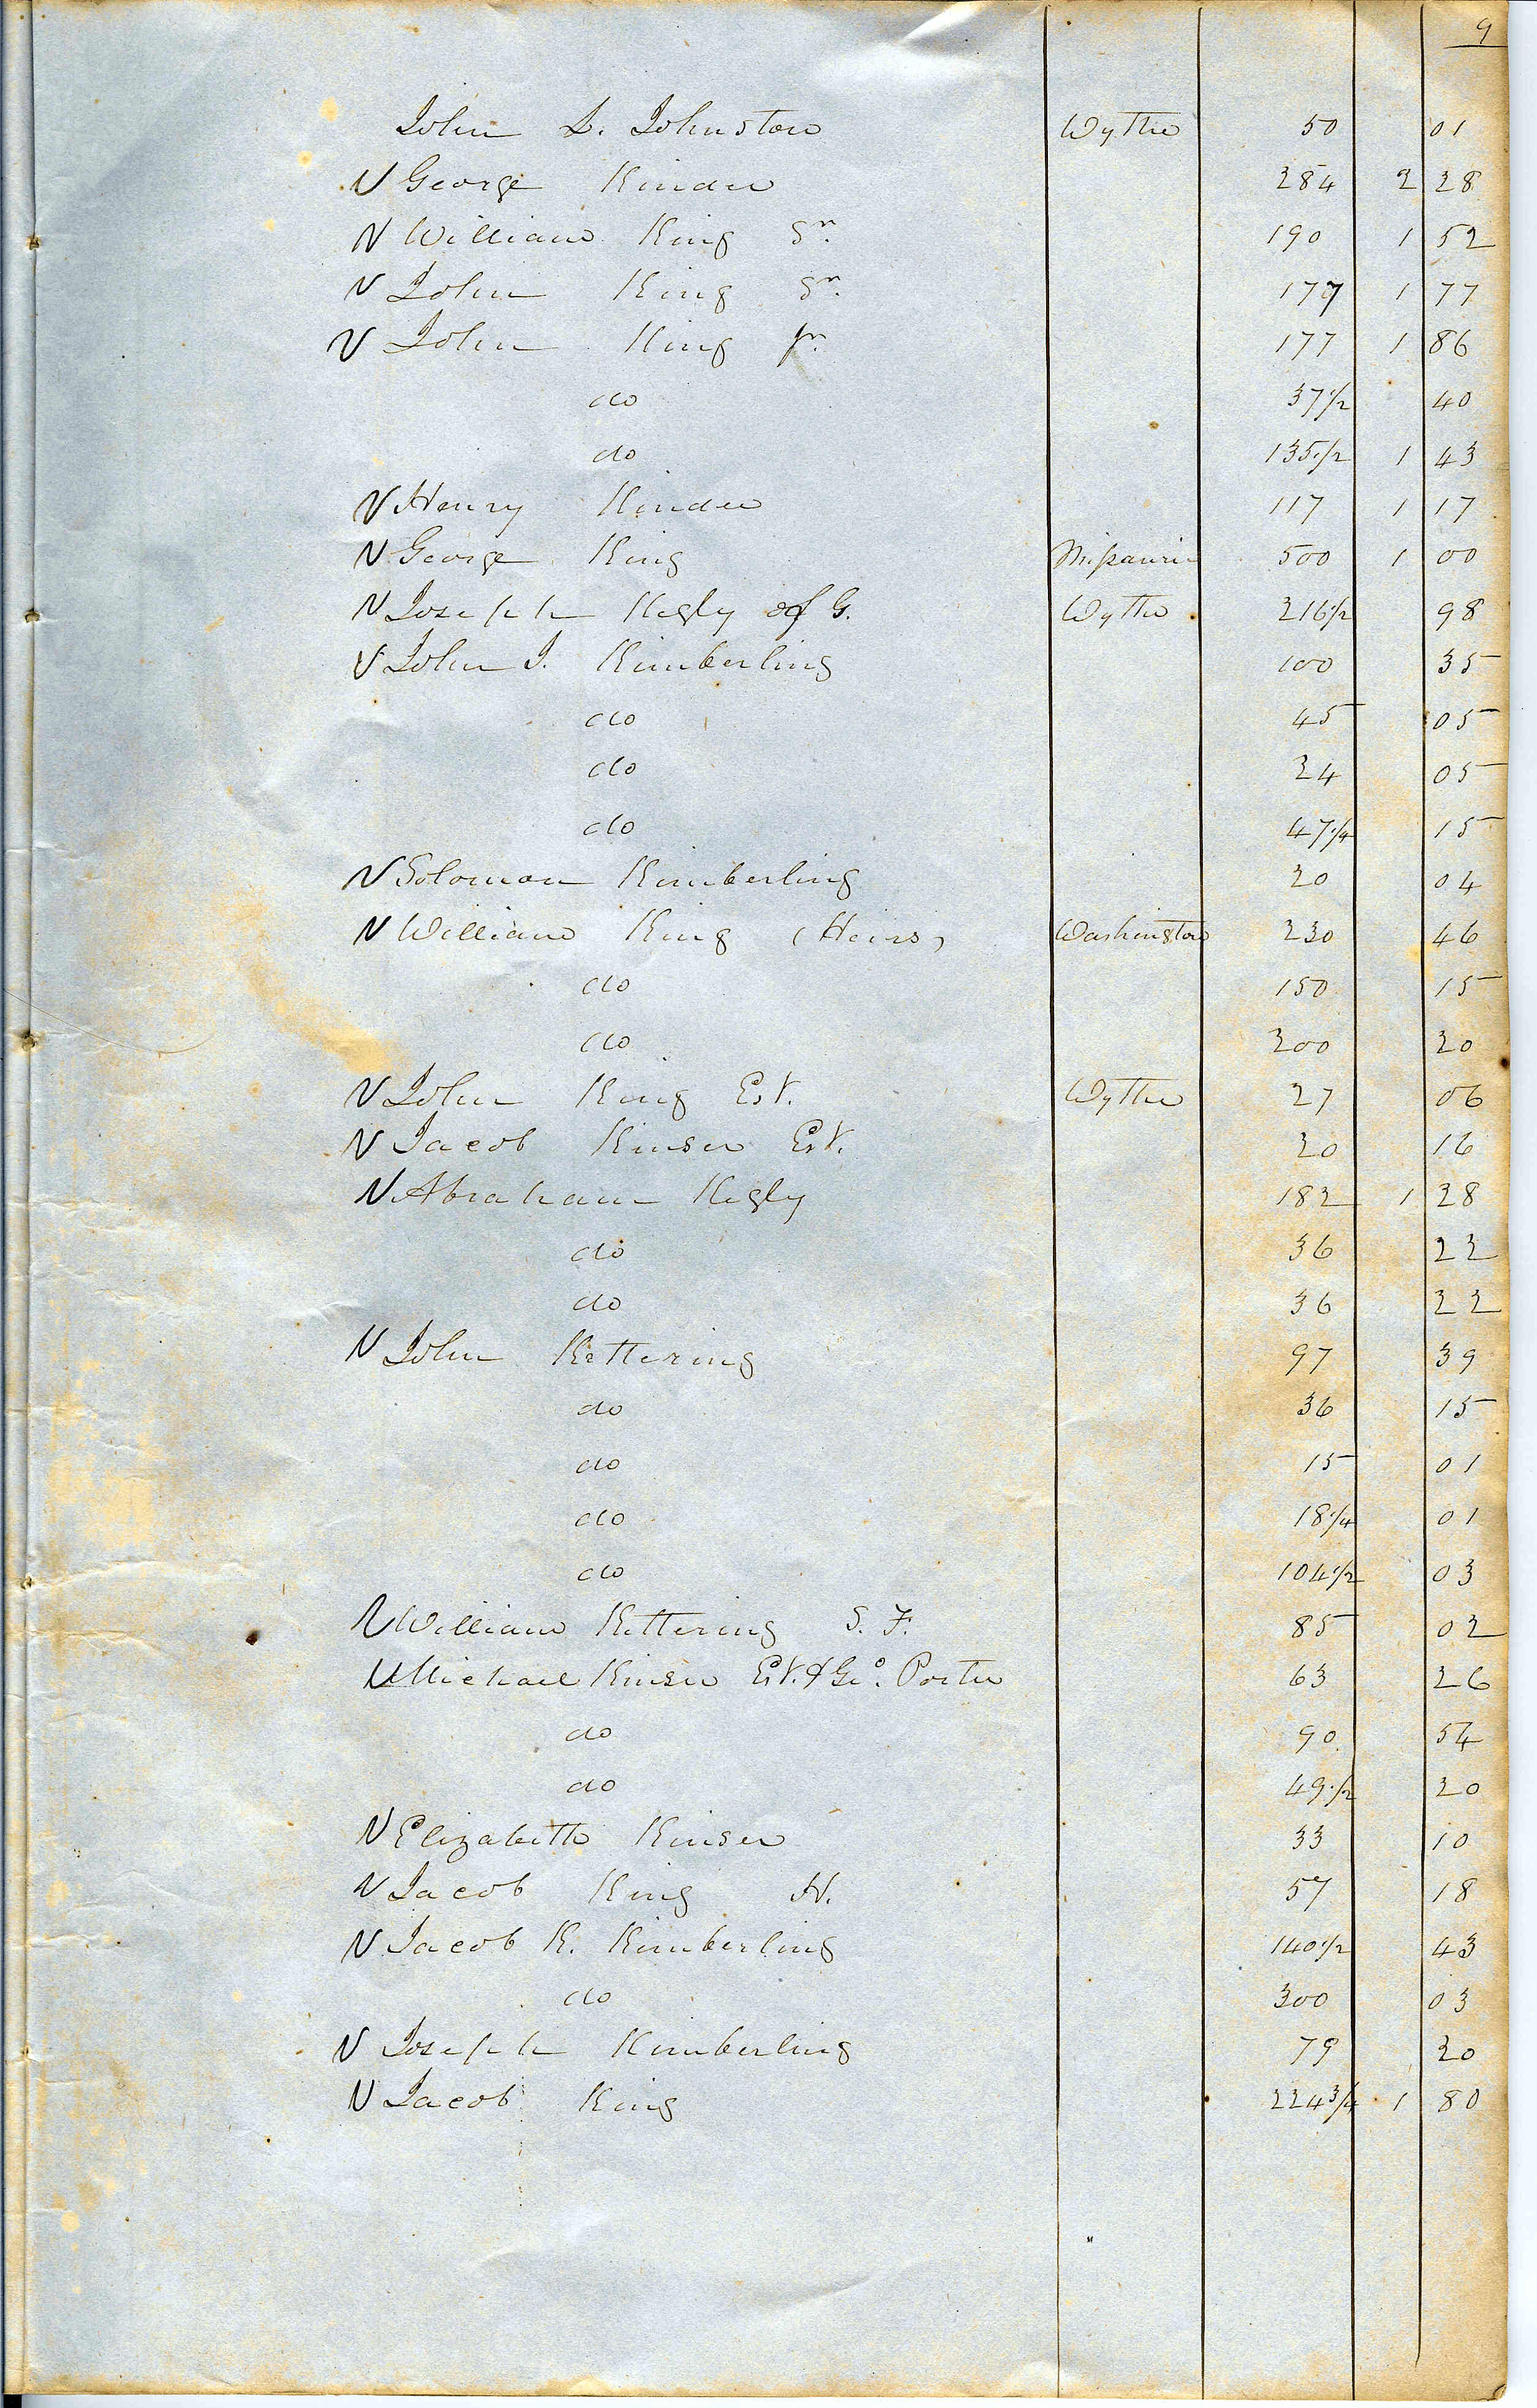 9
John L. Johnston Wythe 50 01
V George Kinder 284 2 28
V William King Sr. 190 1 52
V John King Sr. 177 1 77
V John King jr. 177 1 86
do 37 1/2 40
do 135 1/2 1 43
V Henry Kinder 117 1 17
V George King Missouri 500 1 00
V Joseph Kegly of G. Wythe 216 1/2 98
V John J. Kimberling 100 35
do 45 05
do 24 05
do 47 1/4 15
V Solomon Kimberling 20 04
V William King (Heirs) Washington 230 46
do 150 15
do 200 20
V John King Est. Wythe 27 06
V Jacob Kinser Est. 20 16
V Abraham Kegly 182 1 28
do 36 22
do 36 22
V John Kettering 97 39
do 36 15
do 15 01
do 18 1/4 01
do 104 1/2 03
V William Kettering S. F. 85 02
V Michael Kinser Est. & Geo. Porter 63 26
do 90 54
do 49 1/2 20
V Elizabeth Kinser 33 10
V Jacob King H. 57 18
V Jacob K. Kimberling 140 1/2 43
do 300 03
V Joseph Kimberling 79 20
V Jacob King 224 3/4 1 80